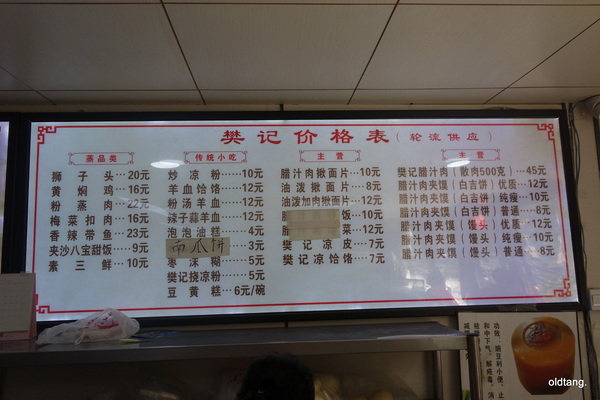 樊记价格表(轮流供应)
蒸品类
狮子头…20元
黄焖鸡…16元
粉蒸肉…22元
梅菜扣肉…16元
香辣带鱼…23元
夹沙八宝甜饭…9元
素三鲜…10元
传统小吃
炒凉粉…10元
羊血饸饹…12元
粉汤羊血…12元
辣子蒜羊血…12元
泡泡油糕…4元
南瓜饼…3元
枣沫糊…5元
樊记挠凉粉…5元
豆黄糕…6元/碗
主营
腊汁肉揪面片…10元
油泼揪面片…8元
油泼加肉揪面片…12元
腊 饭…10元
腊 菜…12元
樊记凉皮…7元
樊记凉饸饹…7元
主营
樊记腊汁肉(散肉500克)…45元
腊汁肉夹馍(白吉饼)优质…12元
腊汁肉夹馍(白吉饼)纯瘦…10元
腊汁肉夹馍(白吉饼)普通…8元
腊汁肉夹馍(馒头)优质…12元
腊汁肉夹馍(馒头)纯瘦…10元
腊汁肉夹馍(馒头)普通…8元
oldtang.